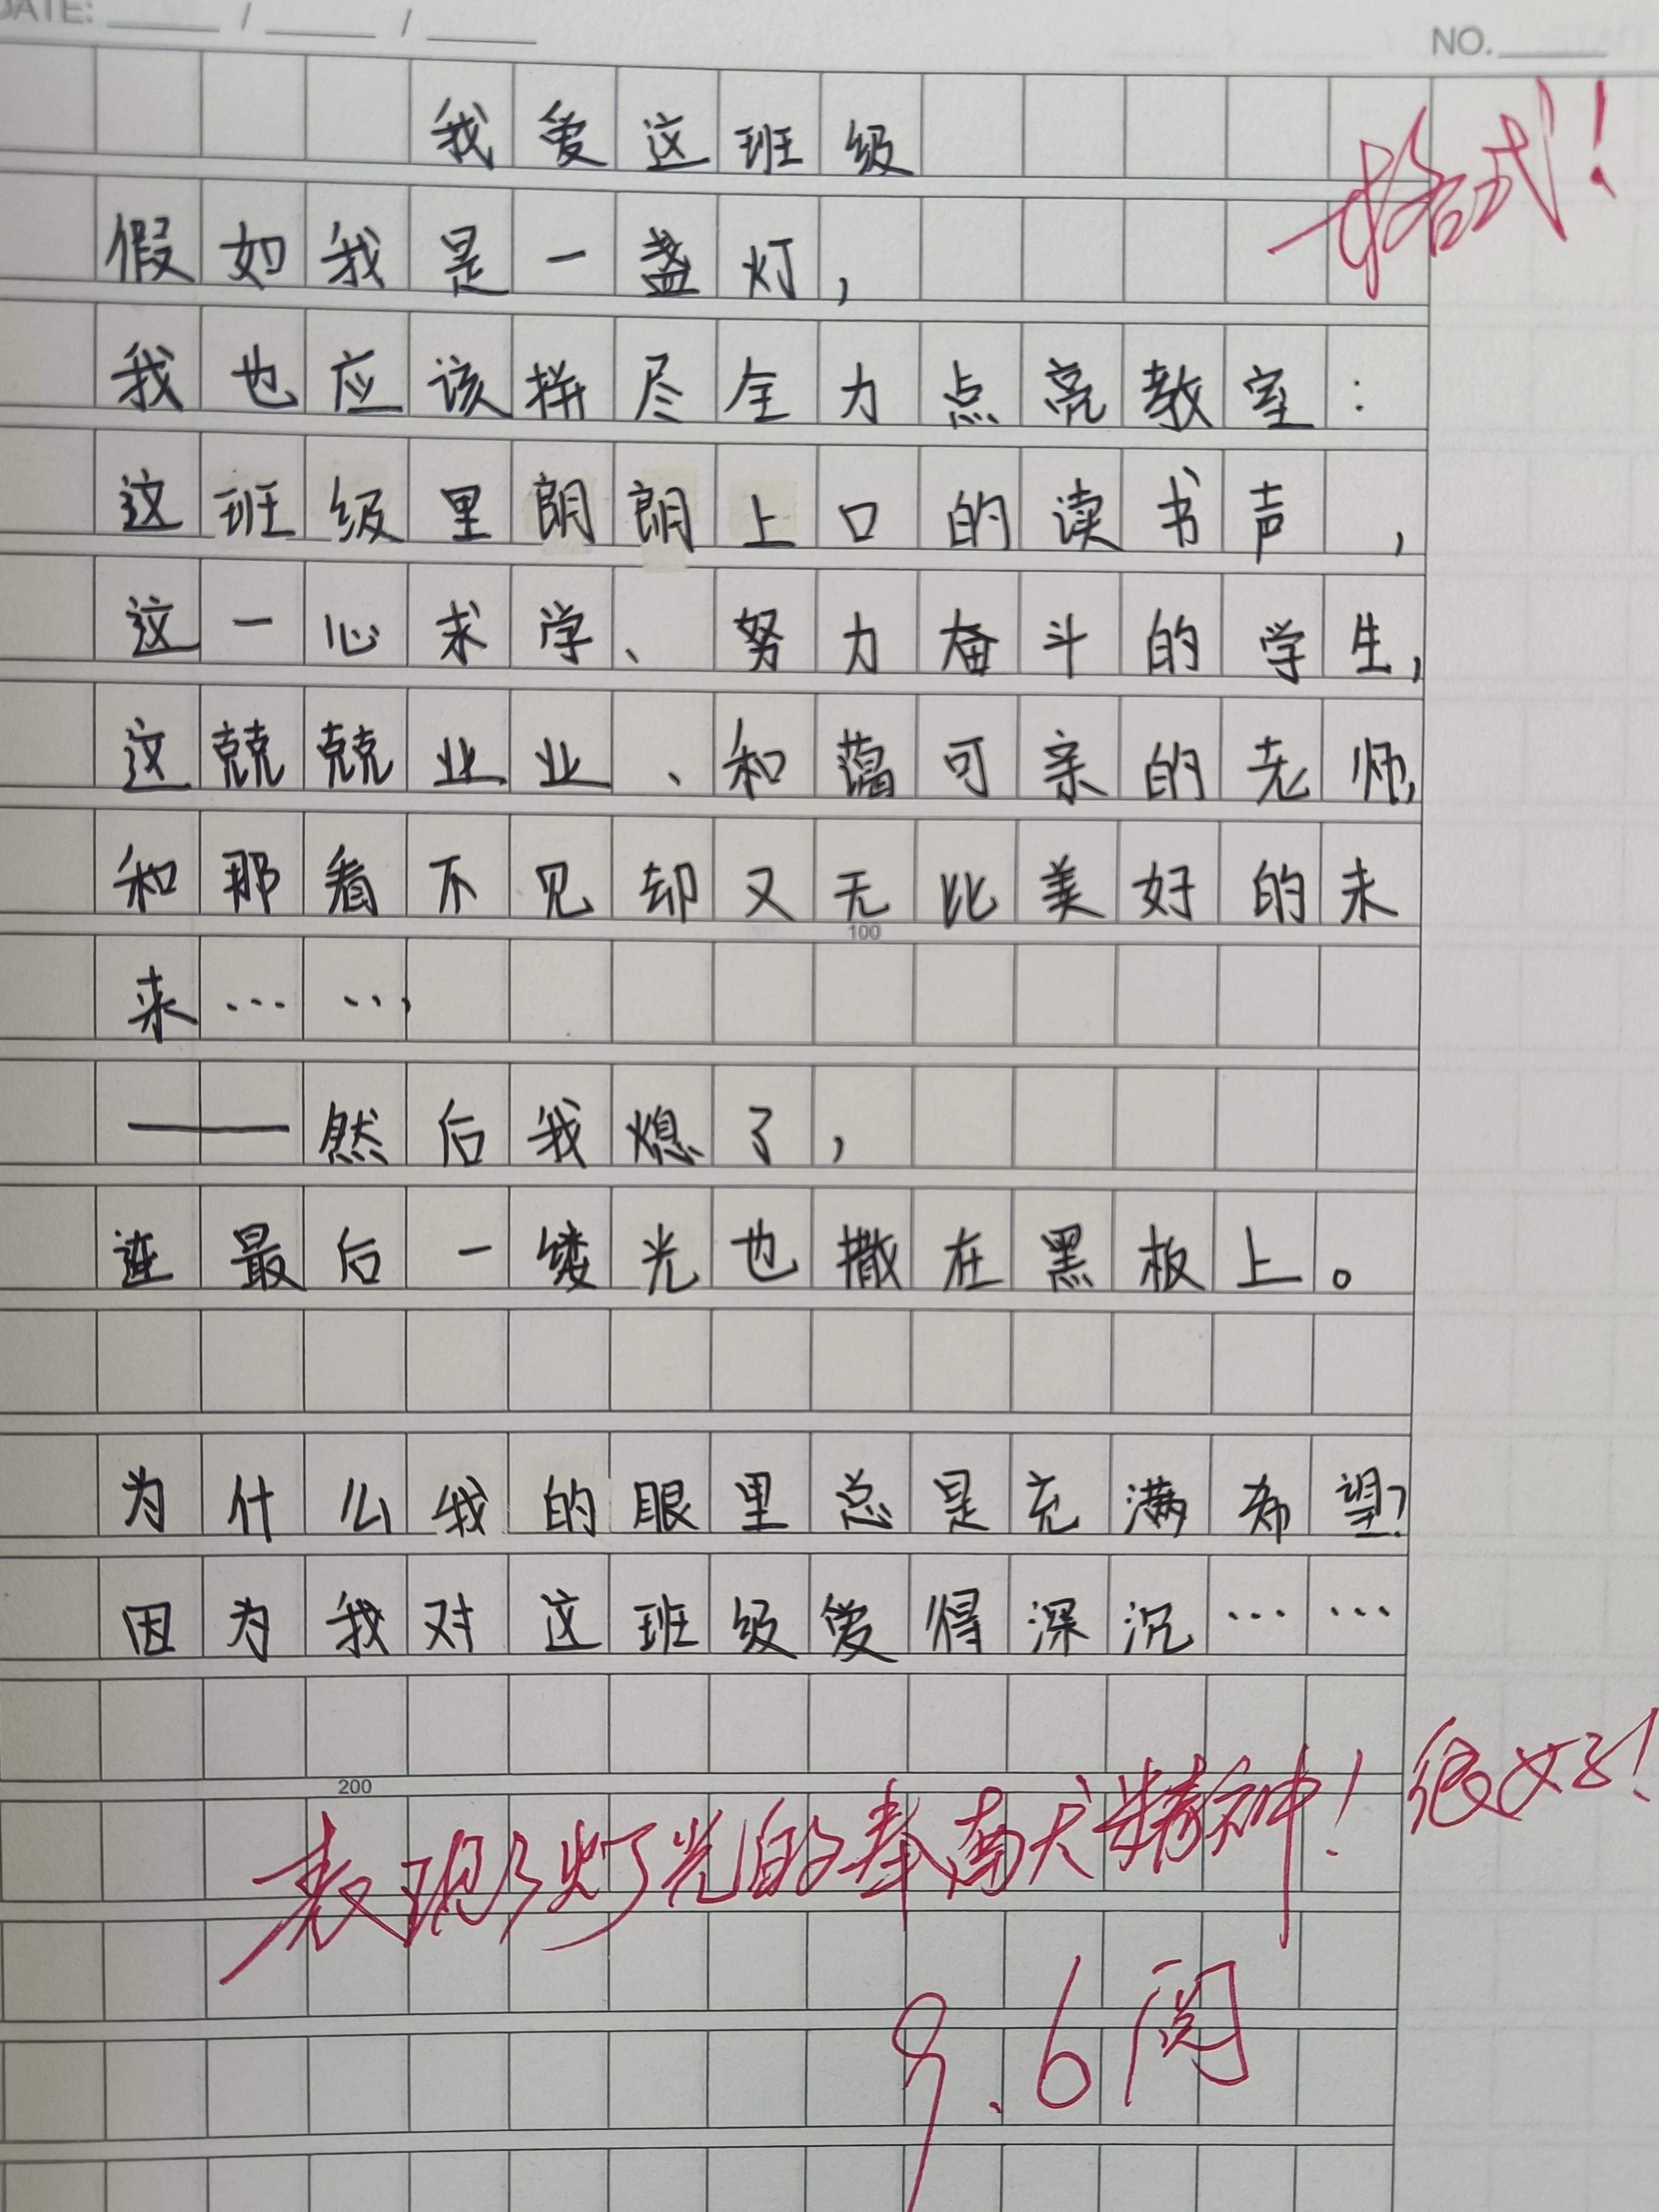 DATE: ____ / ____ / ____
NO.____
我爱这班级
格式！
假如我是一盏灯，
我也应该拼尽全力点亮教室：
这班级里朗朗上口的读书声，
这一心求学、努力奋斗的学生，
这兢兢业业、和蔼可亲的老师，
和那看不见却又无比美好的未
100
来……，
——然后我熄了，
连最后一缕光也撒在黑板上。
为什么我的眼里总是充满希望？
因为我对这班级爱得深沉……
200
表现了灯光的奉献精神！很好！
9.6阅